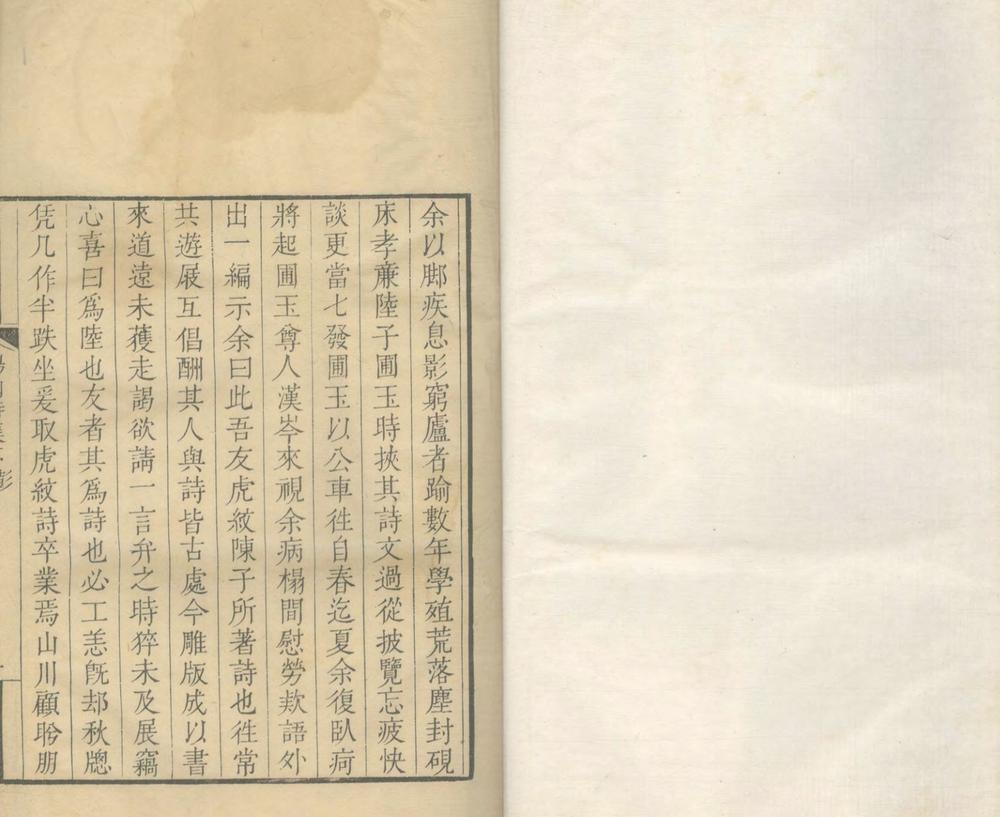 余以脚疾息影窮廬者踰數年學殖荒落塵封硯
床孝亷陸子圃玉時挾其詩文過從披覽忘疲快
談更當七發圃玉以公車徃自春迄夏余復臥疴
將起圃玉尊人漢岑來視余病榻間慰勞欵語外
出一編示余曰此吾友虎紋陳子所著詩也徃常
共遊展互倡酬其人與詩皆古處今雕版成以書
來道遠未蒦走謁欲請一言弁之時猝未及展竊
心喜曰爲陸也友者其爲詩也必工恙旣却秋牕
凭几作半跌坐爰取虎紋詩卒業焉山川顧盼朋